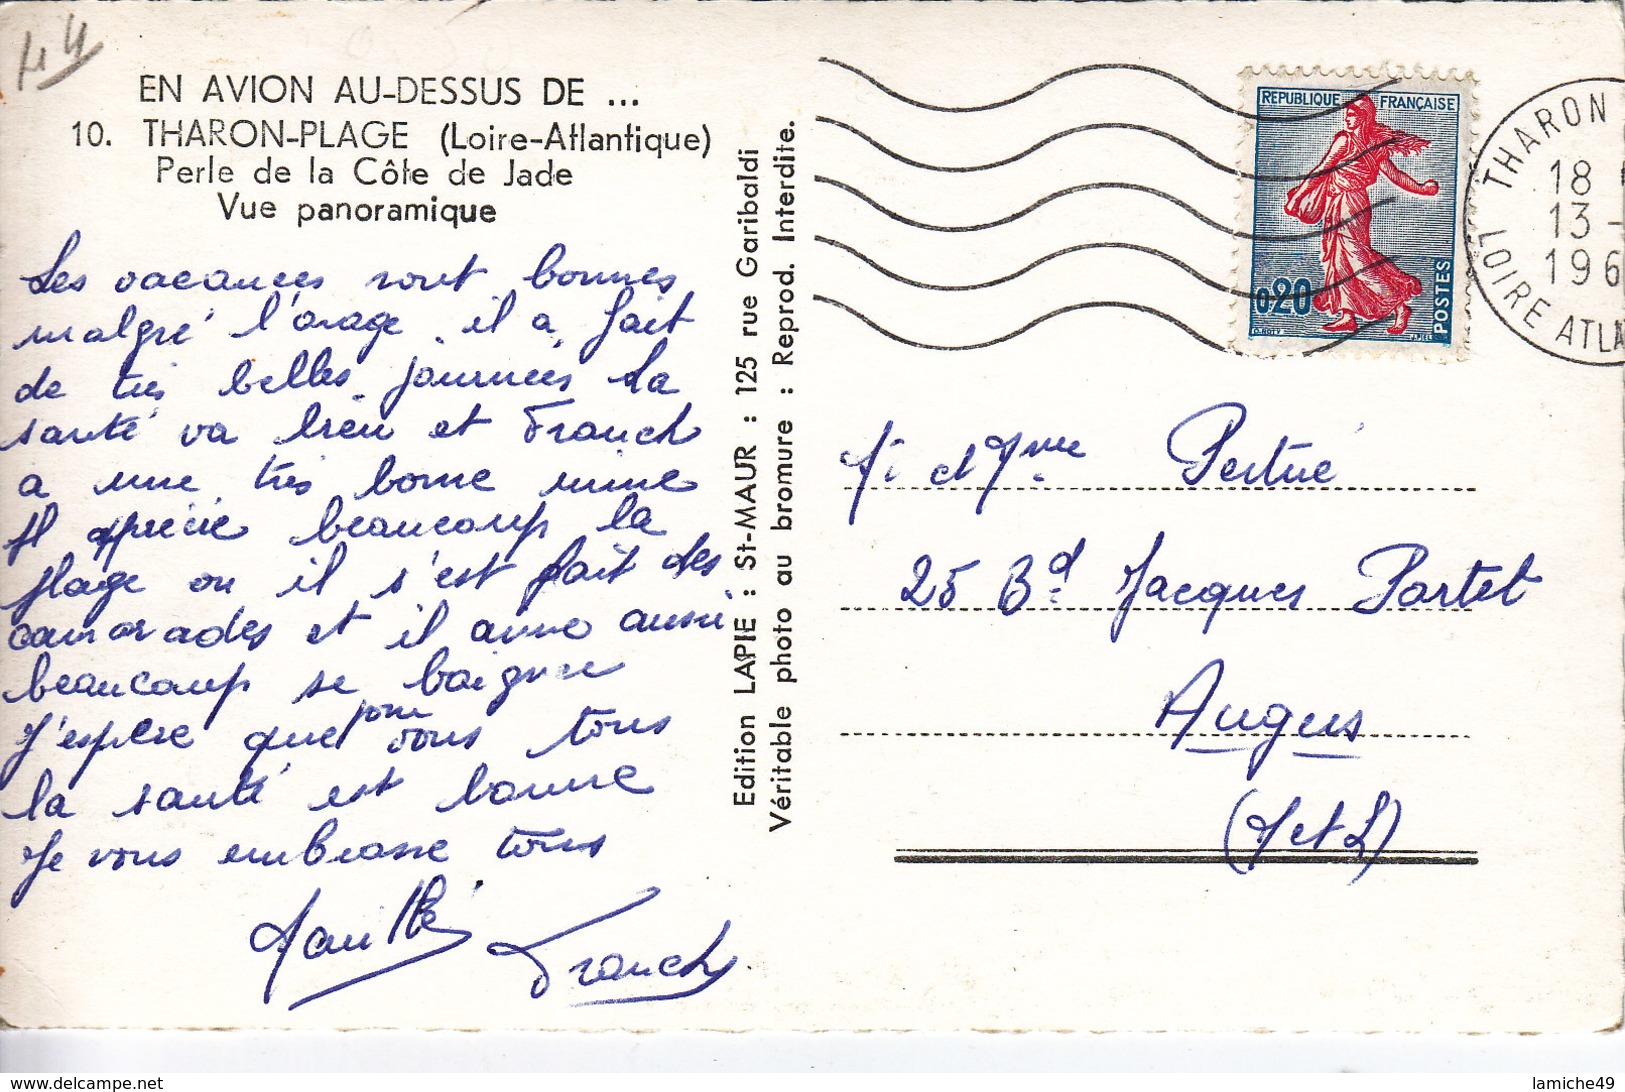 44
EN AVION AU-DESSUS DE ...
10. THARON-PLAGE (Loire-Atlantique)
Perle de la Côte de Jade
Vue panoramique
Les vacances sont bonnes
malgré l'orage il a fait
de très belles journées La
santé va bien et Franck
a une très bonne mine
Il apprécie beaucoup la
plage ou il s'est fait des
camarades et il aime aussi
beaucoup se baigner
J'espère que pour vous tous
la santé est bonne
Je vous embrasse tous
Franck
Edition LAPIE : St-MAUR : 125 rue Garibaldi
Véritable photo au bromure : Reprod. Interdite.
REPUBLIQUE FRANÇAISE
0,20
POSTES
O.ROTY
J.PIEL
THARON
18
13 -
196
LOIRE ATLA
M. et Mme Pertué
25 Bd Jacques Portet
Angers
(M et L)
lamiche49